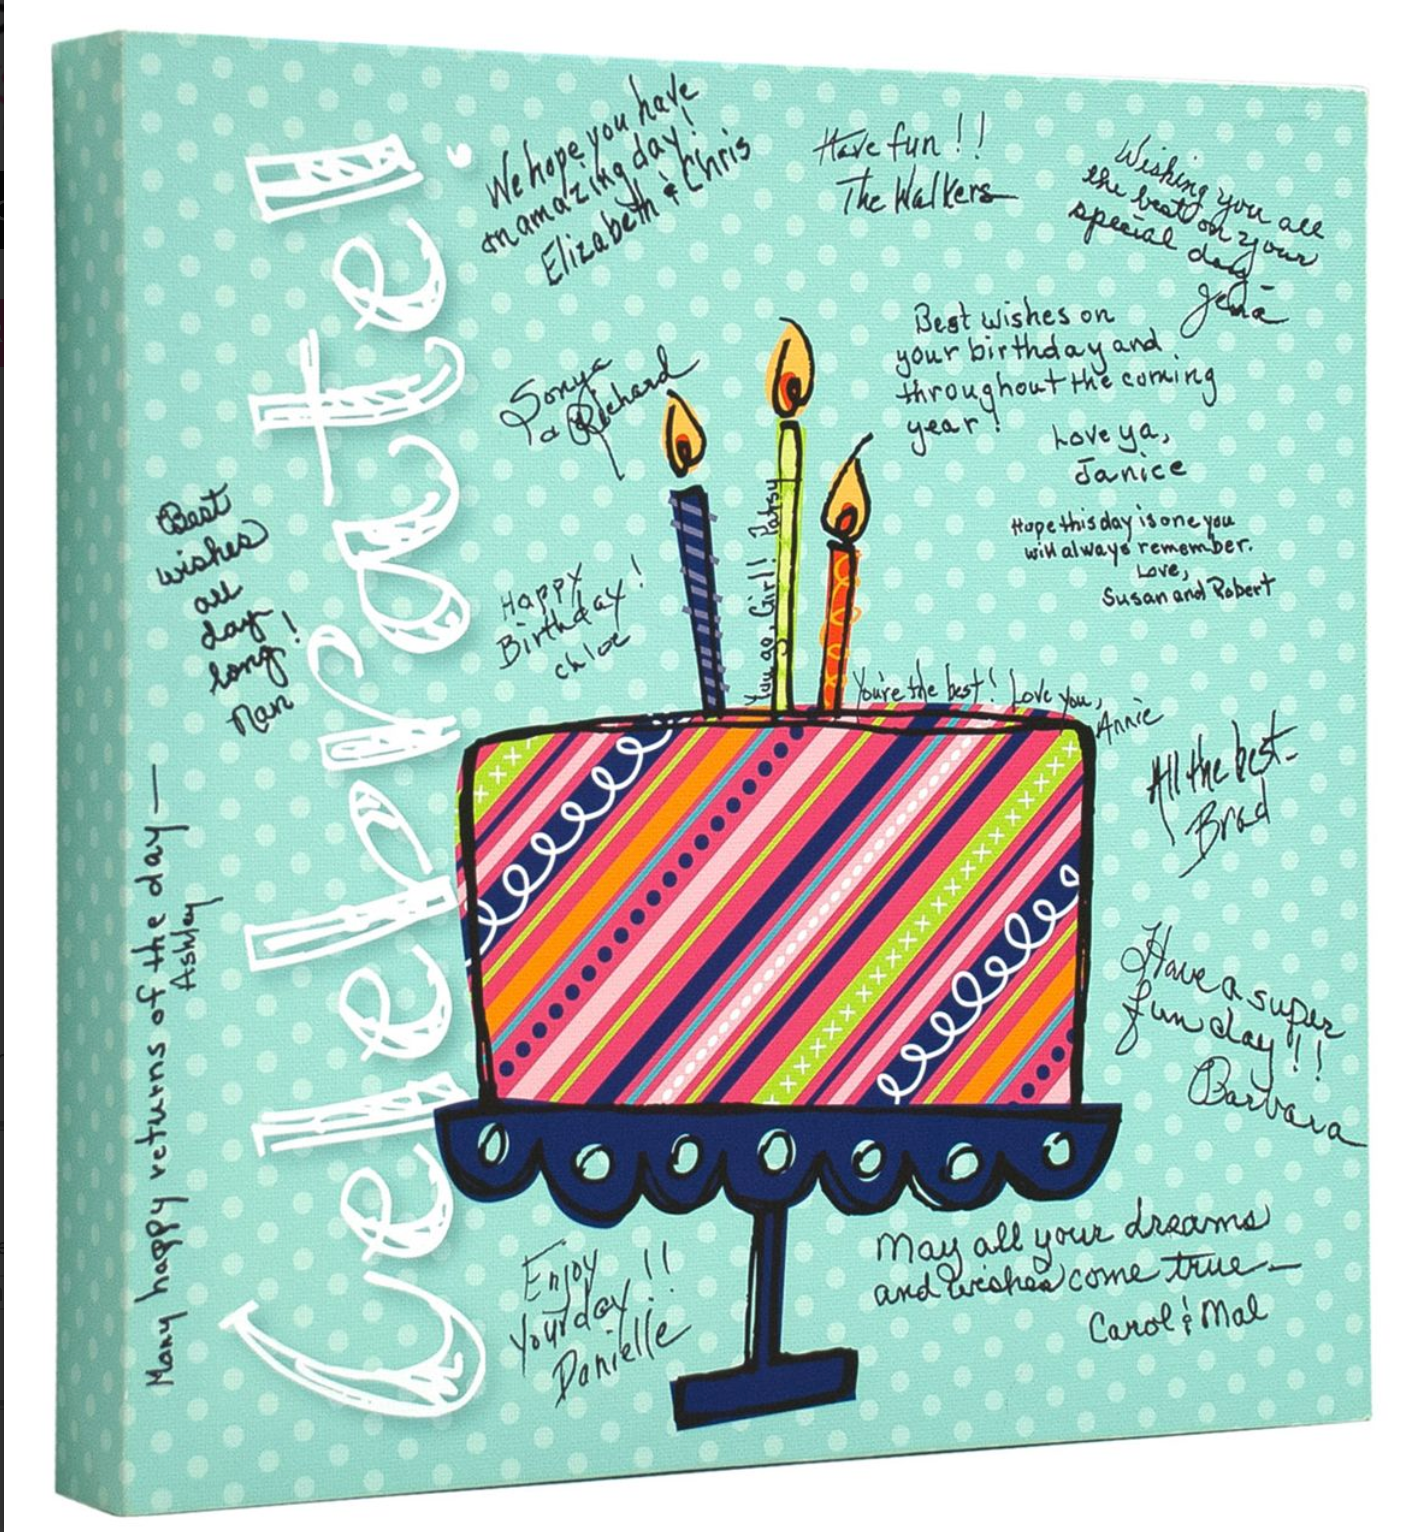 Celebrate!
We hope you have
an amazing day!
Elizabeth & Chris
Have fun!!
The Walkers
Wishing you all
the best on your
special day -
Jena
Best wishes on
your birthday and
throughout the coming
year!
Love ya,
Janice
Sonya
& Richard
Hope this day is one you
will always remember.
Love,
Susan and Robert
Best
wishes
all
day
long!
Nan
Happy
Birthday!
chloe
You go, Girl! Patsy
You're the best! Love you,
Annie
All the best-
Brad
Many happy returns of the day —
Ashley
Have a super
fun day!!
Barbara
Enjoy
your day!!
Danielle
May all your dreams
and wishes come true —
Carol & Mal